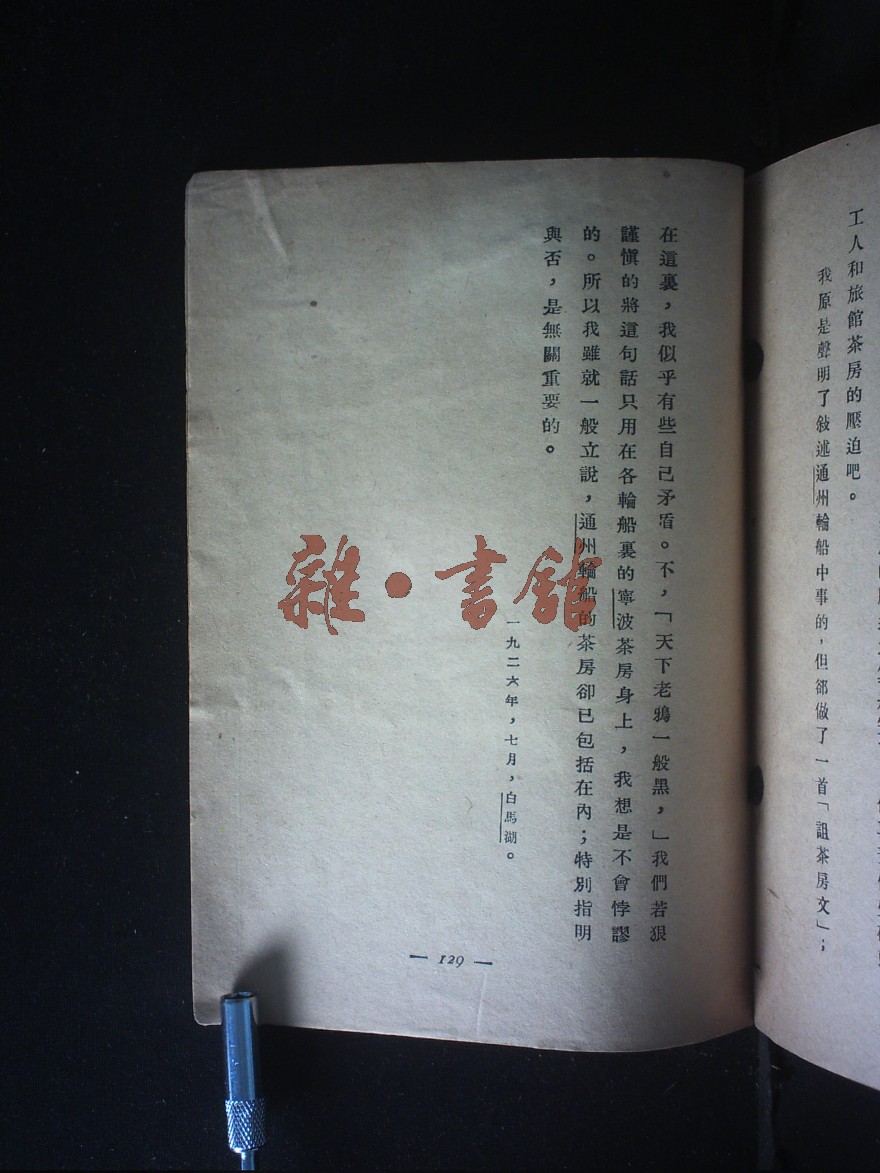 工人和旅館茶房的壓迫吧。
我原是聲明了敍述通州輪船中事的，但卻做了一首「詛茶房文」；
在這裏，我似乎有些自己矛盾。不，「天下老鴉一般黑，」我們若狠
謹愼的將這句話只用在各輪船裏的寧波茶房身上，我想是不會悖謬
的。所以我雖就一般立說，通州輪船的茶房卻已包括在內；特別指明
與否，是無關重要的。
一九二六年，七月，白馬湖。
— 129 —
雜·書館